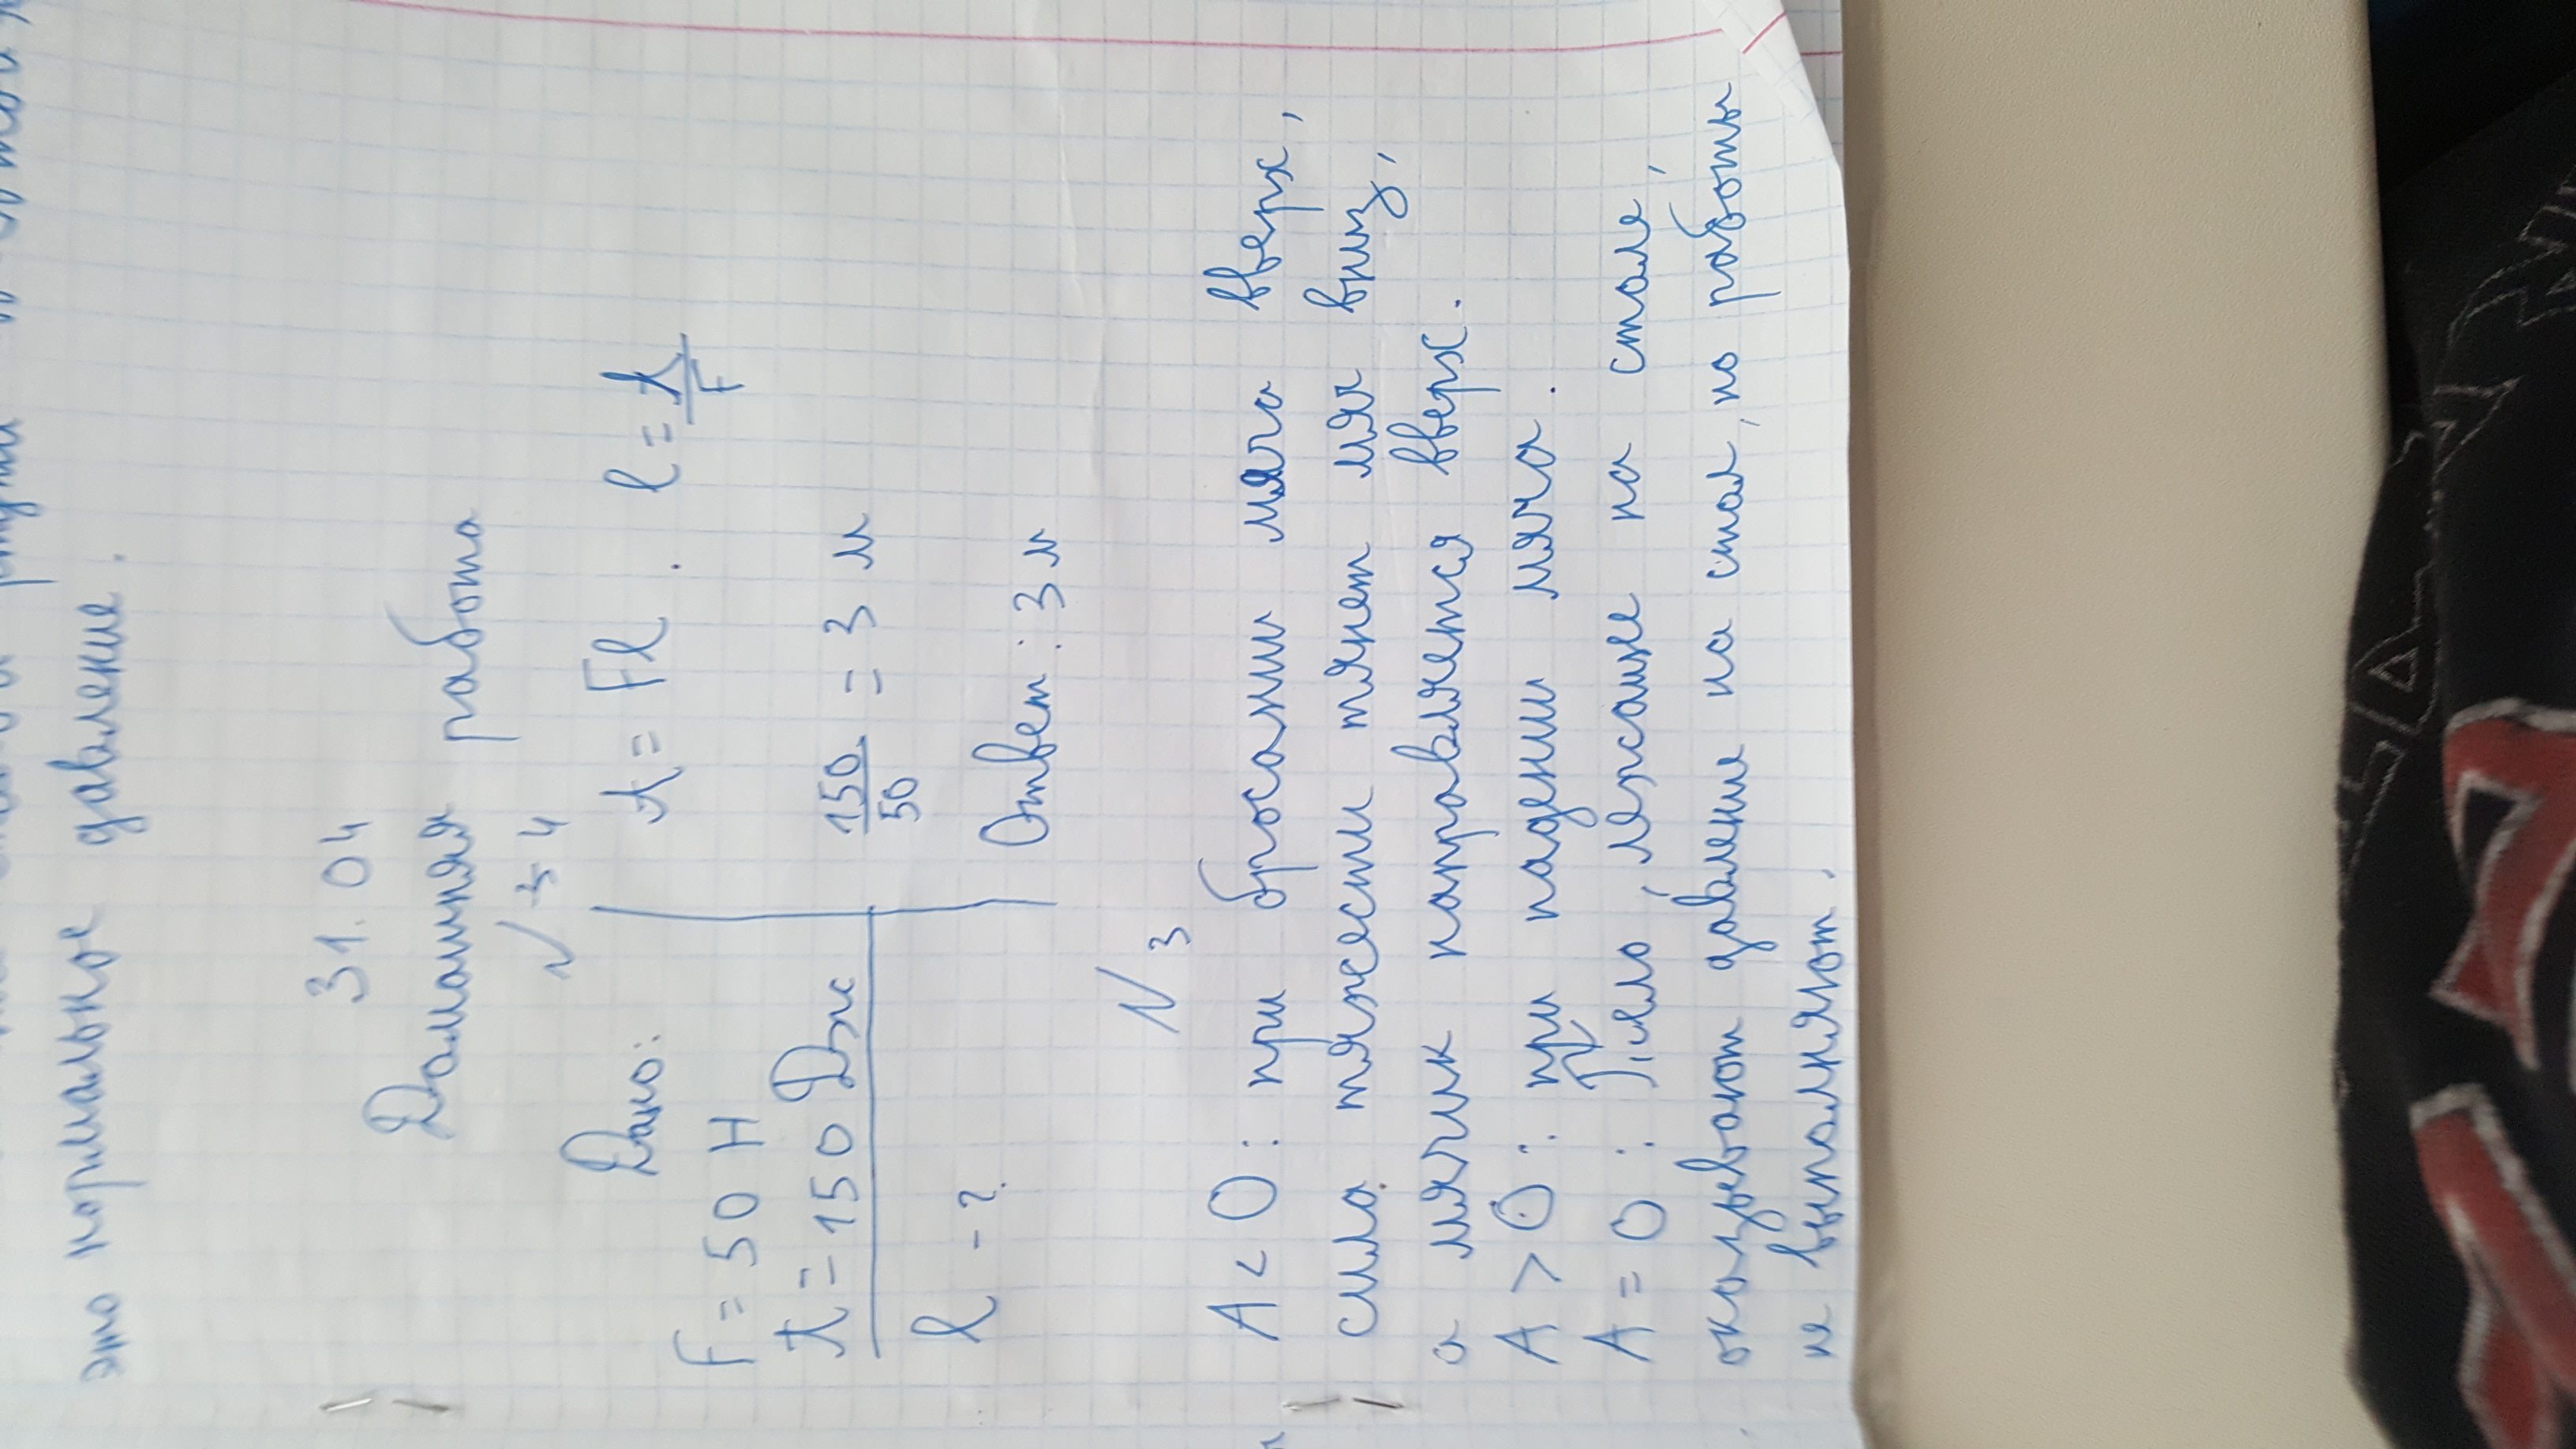 это нормальное давление.
31.04
Домашняя работа
№ 34
Дано:
F = 50 Н
A = 150 Дж
l - ?
A = Fl. l = A/F
150/50 = 3 м
Ответ: 3 м
№ 3
A < 0 : при бросании мяча вверх,
сила тяжести тянет мяч вниз,
а мячик направляется вверх.
A > 0 : при падении мяча.
A = 0 : Тело, лежащее на столе,
оказывают давление на стол, но работы
не выполняют.